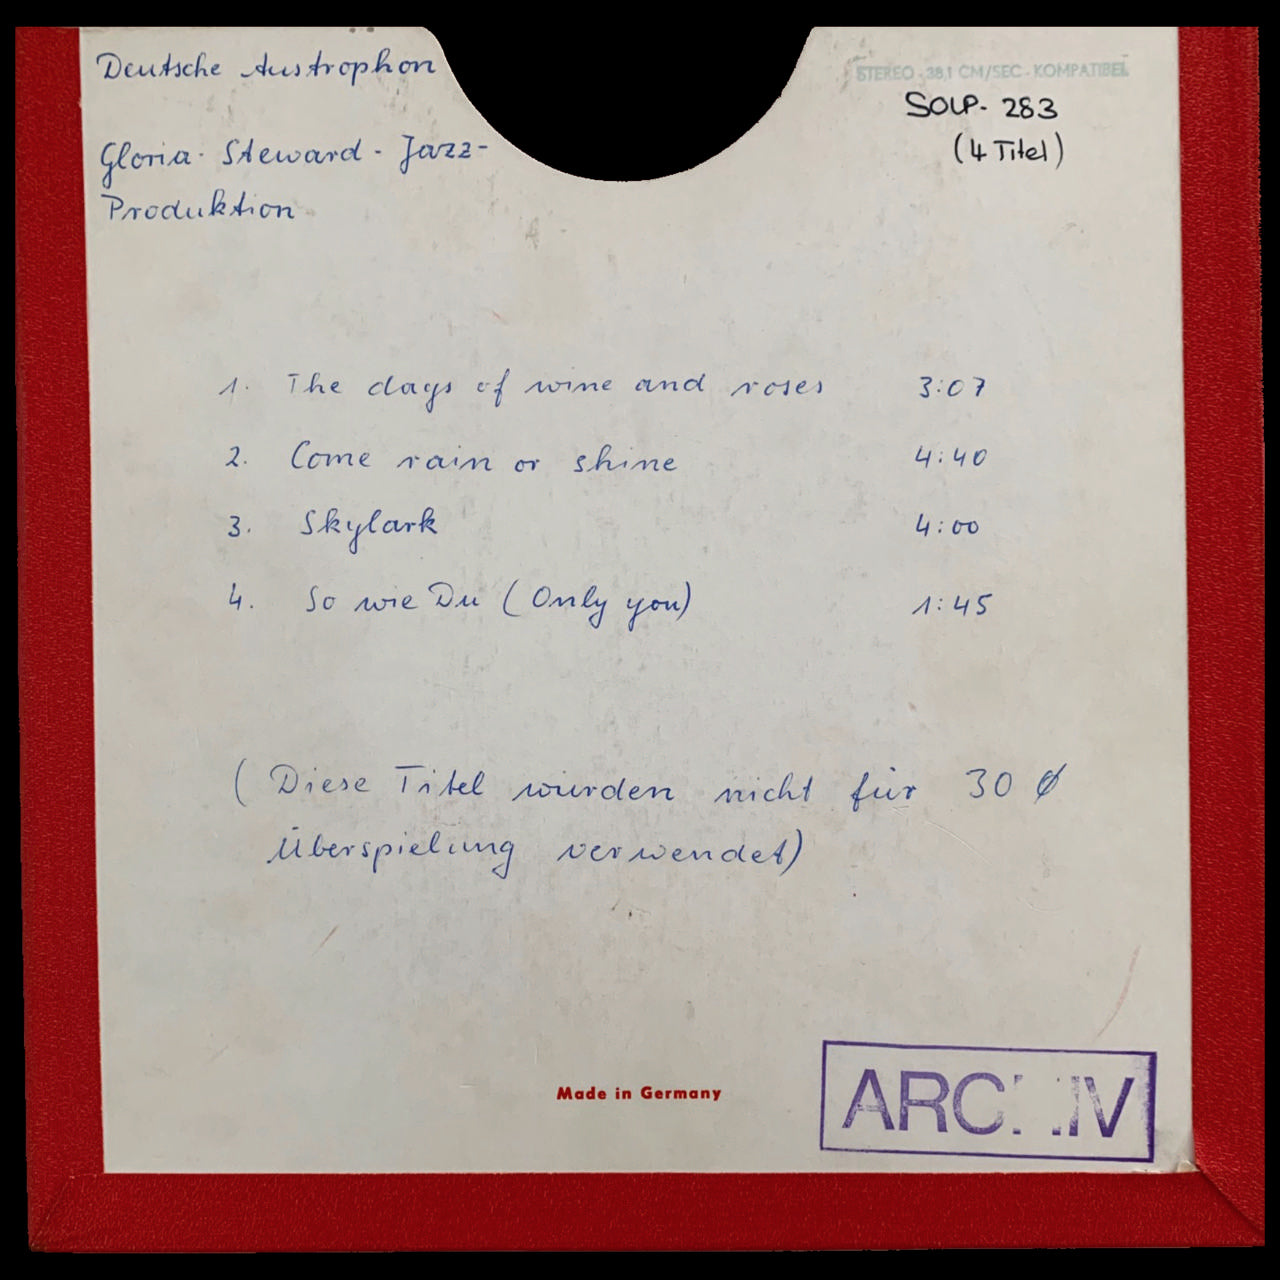 Deutsche Austrophon
STEREO - 38,1 CM/SEC - KOMPATIBEL
SOLP- 283
(4 Titel)
Gloria - Steward - Jazz-
Produktion
1. The days of wine and roses 3:07
2. Come rain or shine 4:40
3. Skylark 4:00
4. So wie Du (Only you) 1:45
(Diese Titel wurden nicht für 30 Ø
Überspielung verwendet)
Made in Germany
ARCHIV